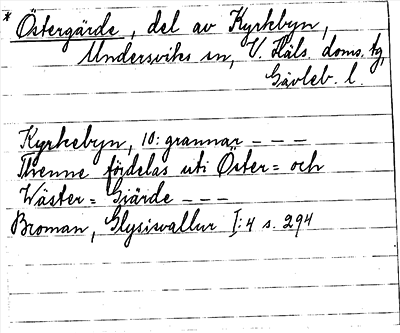 * Östergärde, del av Kyrkbyn,
Undersviks sn, V. Häls. doms. tg,
Gävleb. l.
Kyrkebyn, 10: grannar – – –
Thenne fördelas uti Öster= och
Wäster= Giärde – – –
Broman, Glysisvallur I:4 s. 294